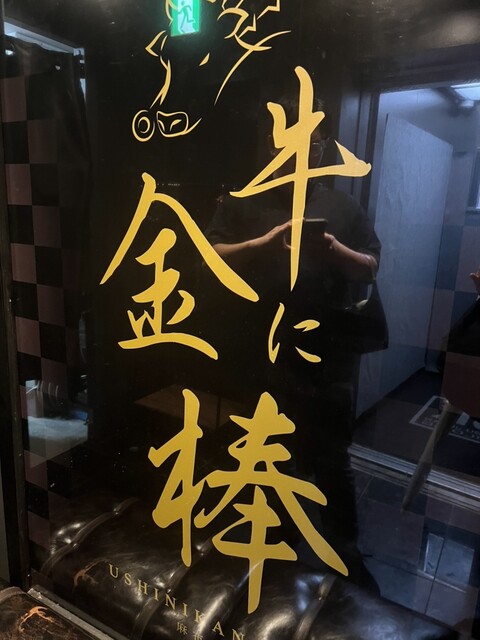 牛に
金棒
USHINIKAN
麻